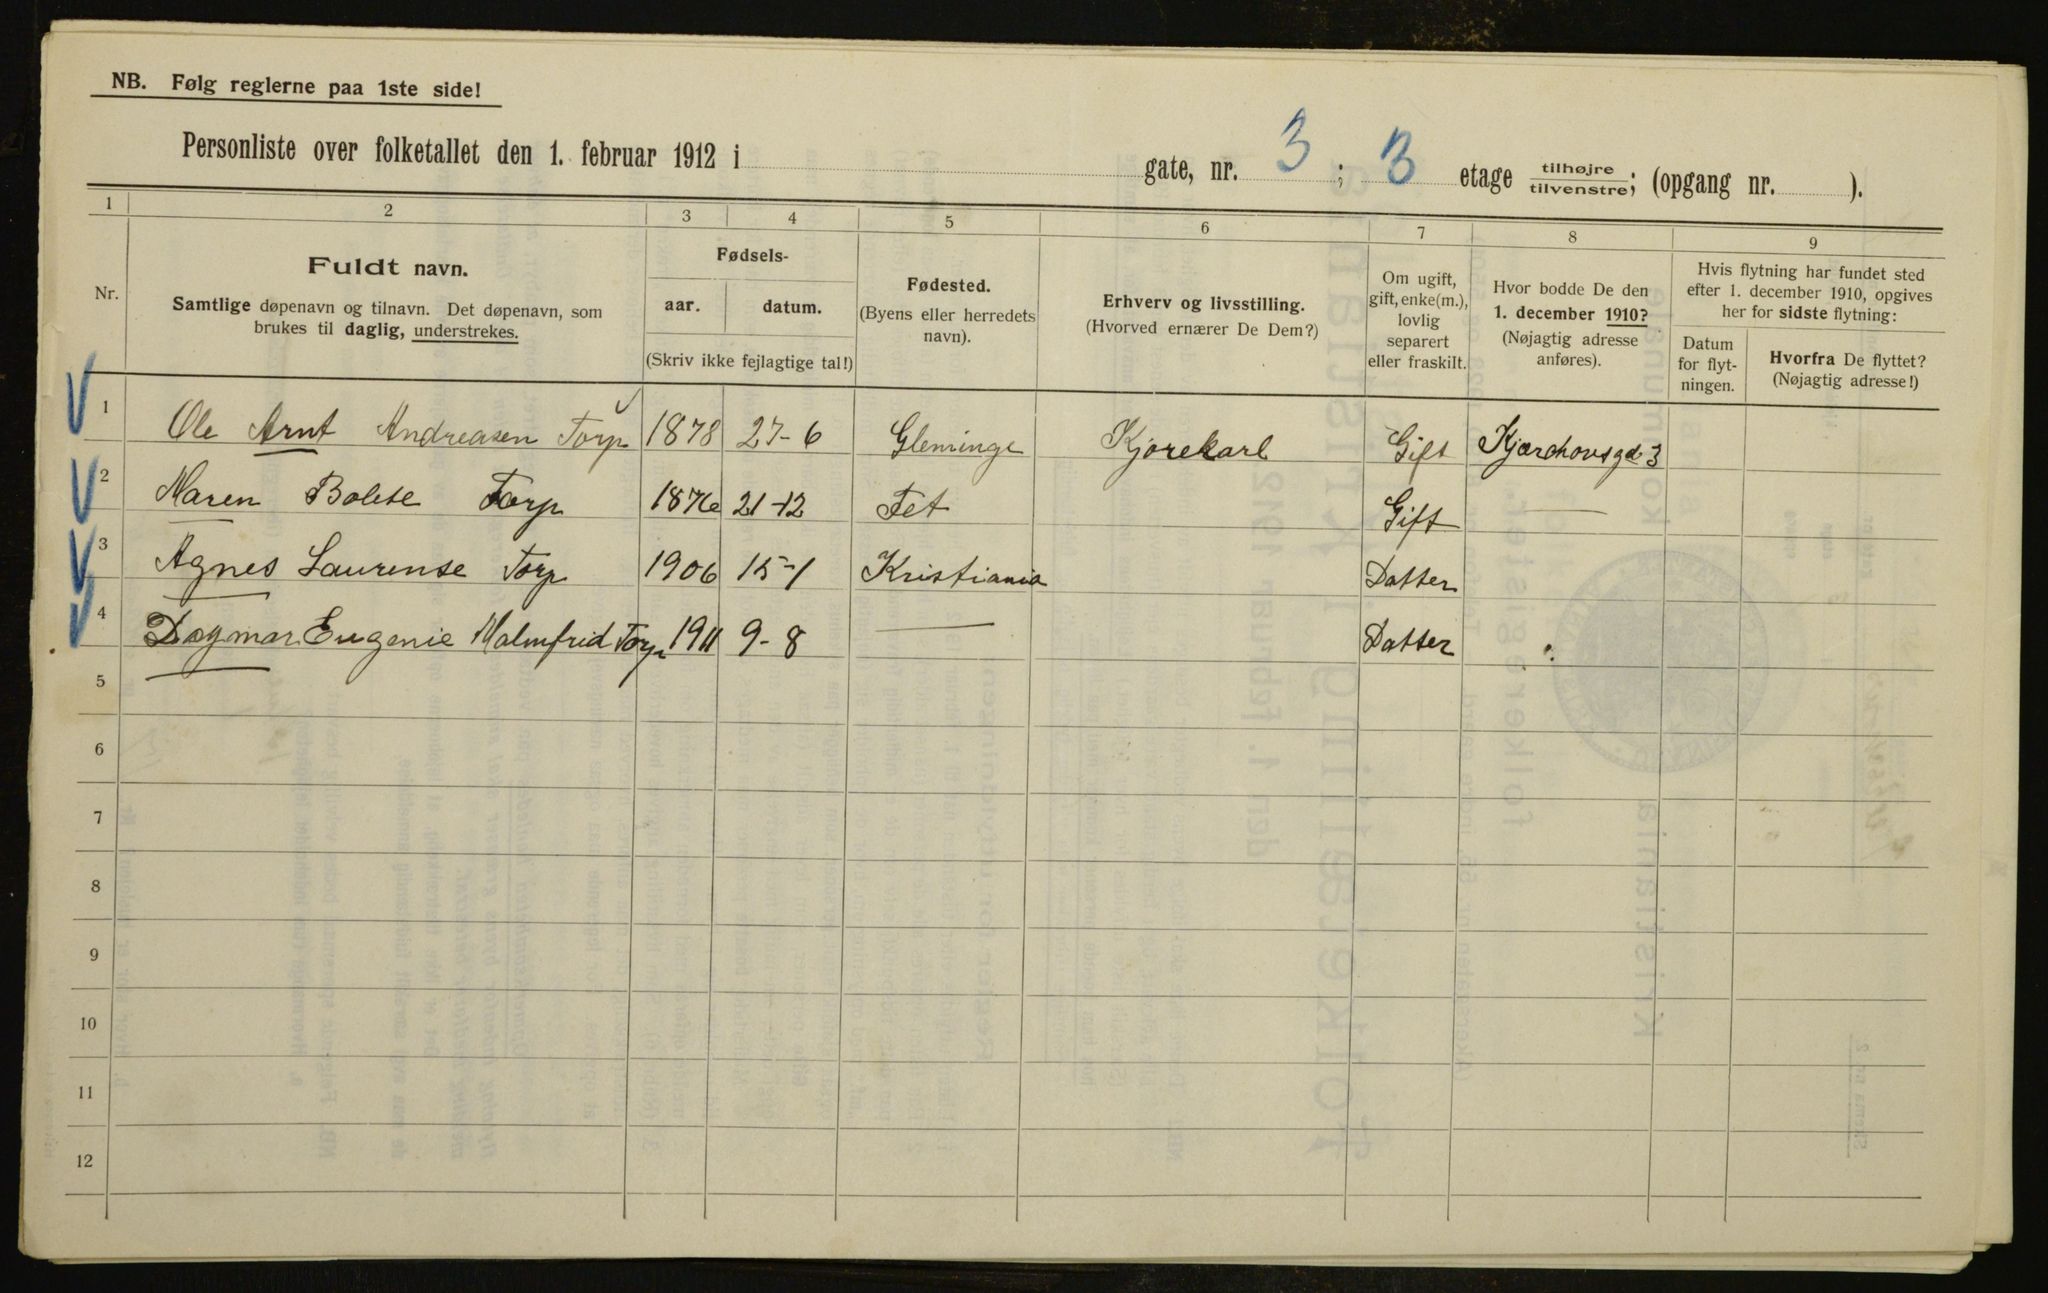 NB. Følg reglerne paa 1ste side!
Personliste over folketallet den 1. februar 1912 i gate, nr. 3 ; 3 etage tilhøjre/tilvenstre; (opgang nr. ).
1 2 3 4 5 6 7 8 9
Nr.
Fuldt navn.
Samtlige døpenavn og tilnavn. Det døpenavn, som
brukes til daglig, understrekes.
Fødsels-
aar. datum.
(Skriv ikke fejlagtige tal!)
Fødested.
(Byens eller herredets
navn).
Erhverv og livsstilling.
(Hvorved ernærer De Dem?)
Om ugift,
gift, enke(m.),
lovlig
separert
eller fraskilt.
Hvor bodde De den
1. december 1910?
(Nøjagtig adresse
anføres).
Hvis flytning har fundet sted
efter 1. december 1910, opgives
her for sidste flytning:
Datum
for flyt-
ningen.
Hvorfra De flyttet?
(Nøjagtig adresse!)
1 Ole Arnt Andreasen Torp 1878 27-6 Gleminge Kjørekarl Gift Kjærchousgd 3
2 Maren Bolete Torp 1876 21-12 Fet Gift —
3 Agnes Laurense Torp 1906 15-1 Kristiania Datter
4 Dagmar Eugenie Malmfrid Torp 1911 9-8 — Datter
5
6
7
8
9
10
11
12